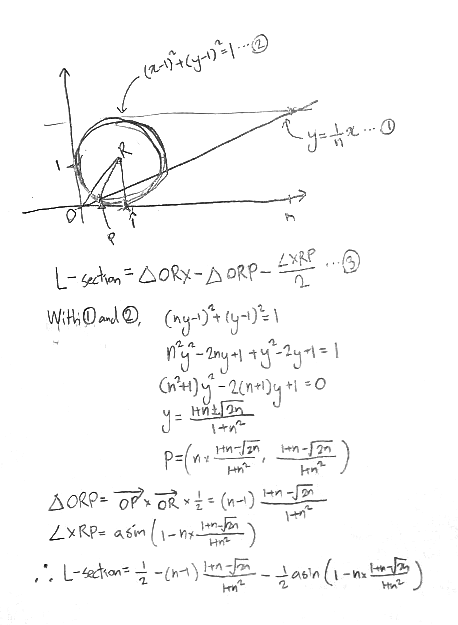 (x-1)²+(y-1)²=1 ··· ②
y=1/n x ··· ①
R
1
O
P
1
n
L-section = △ORX-△ORP- ∠XRP/2 ··· ③
With ① and ②, (ny-1)²+(y-1)²=1
n²y²-2ny+1+y²-2y+1=1
(n²+1)y²-2(n+1)y+1=0
y= (1+n±√2n)/(1+n²)
P=(n× (1+n-√2n)/(1+n²), (1+n-√2n)/(1+n²))
△ORP= OP→ × OR→ × 1/2 = (n-1) (1+n-√2n)/(1+n²)
∠XRP= asin(1-n× (1+n-√2n)/(1+n²))
∴ L-section= 1/2 -(n-1) (1+n-√2n)/(1+n²) - 1/2 asin(1-n× (1+n-√2n)/(1+n²))